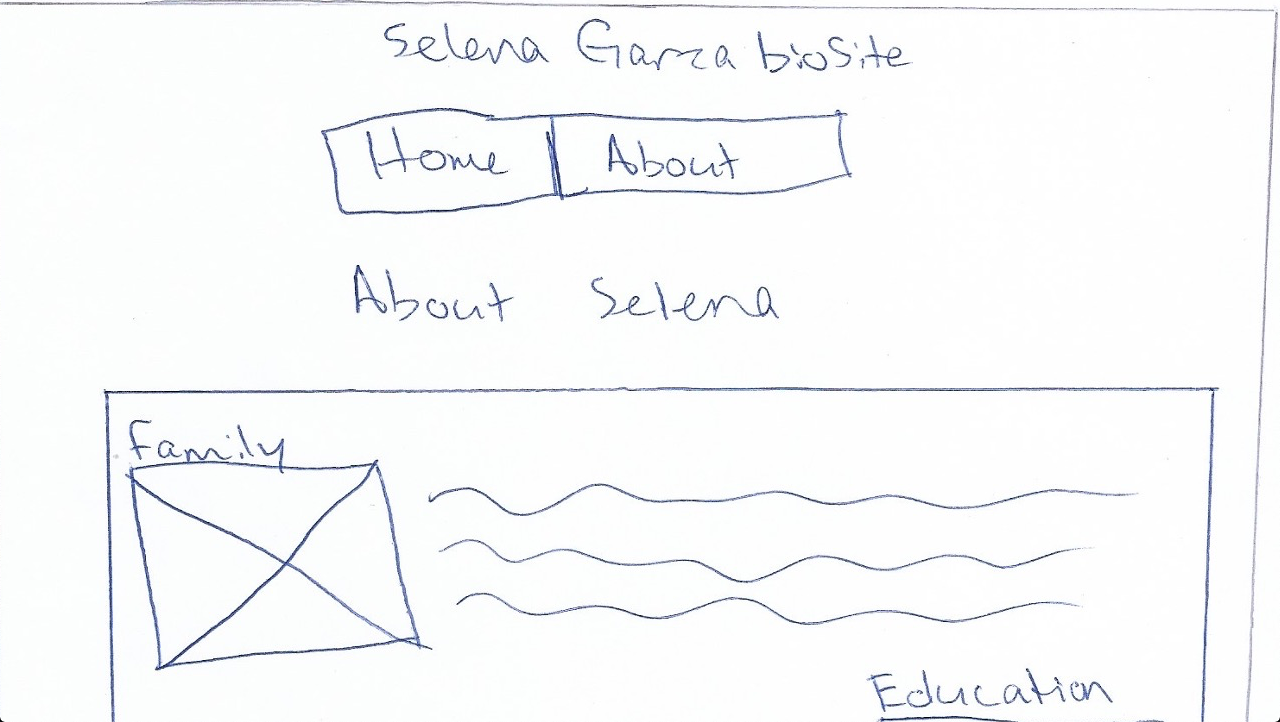 Selena Garza bioSite
Home About
About Selena
Family
Education